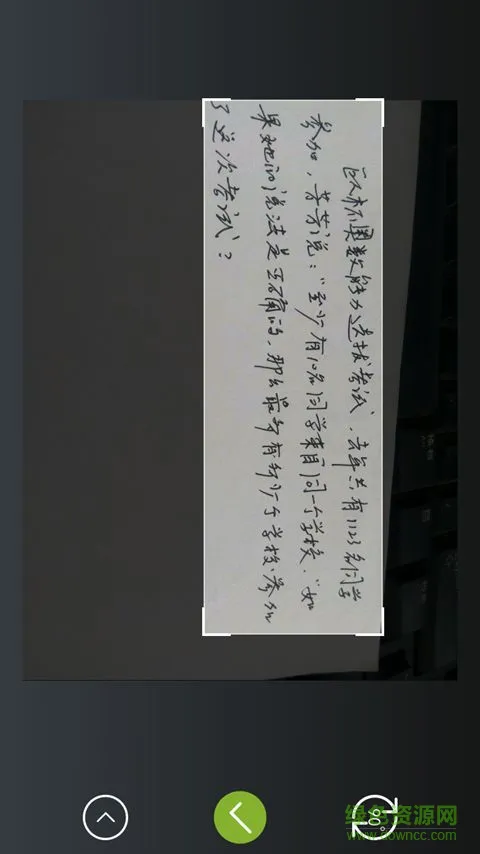 区杯奥数能力选拔考试，去年共有1123名同学
参加，芳芳说：“至少有10名同学来自同一个学校．”如
果她的说法是正确的，那么最多有多少个学校参加
了这次考试？
90°
绿色资源网
www.downcc.com